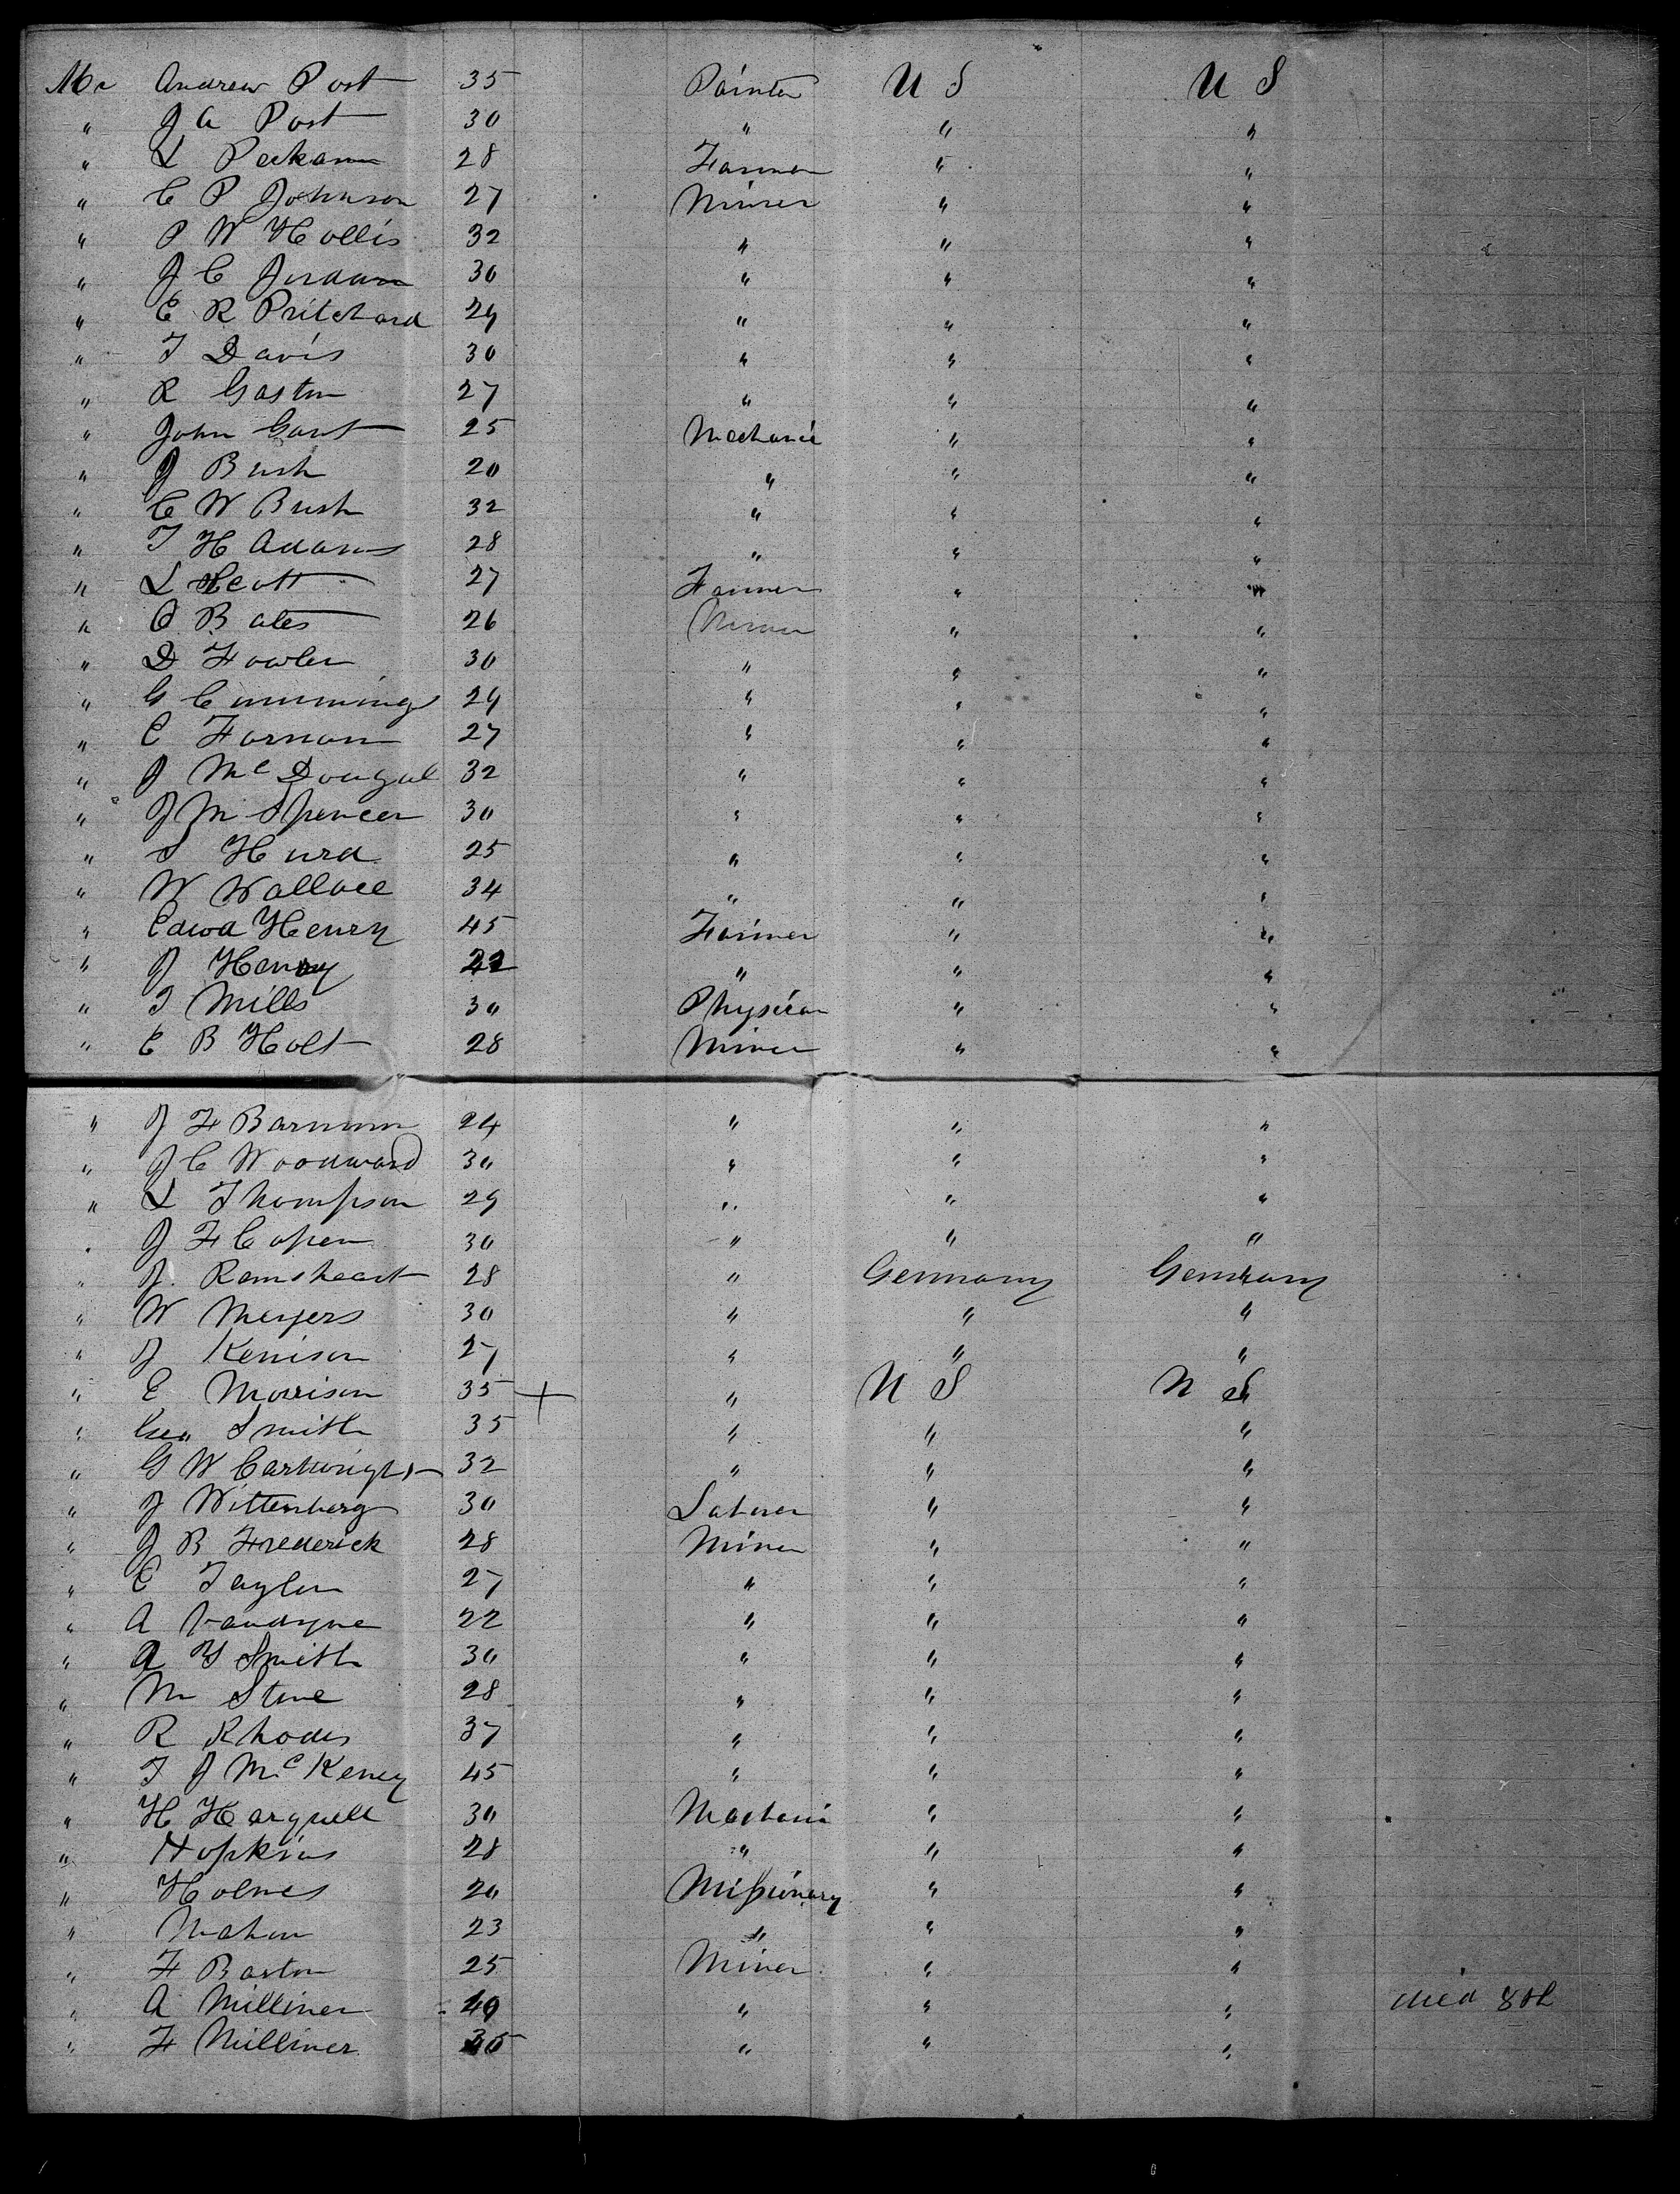 Mr Andrew Post 35 Painter U S U S
" J A Post 30 " " "
" L Peckam 28 Farmer " "
" C P Johnson 27 Miner " "
" P W Hollis 32 " " "
" J C Jordan 30 " " "
" E R Pritchard 29 " " "
" T Davis 30 " " "
" R Gaston 27 " " "
" John Gant 25 Mechanic " "
" J Bush 20 " " "
" C W Bush 32 " " "
" T H Adams 28 " " "
" L Scott 27 Farmer " "
" O Bates 26 Miner " "
" D Fowler 30 " " "
" G Cummings 29 " " "
" C Farnam 27 " " "
" J McDougal 32 " " "
" J M Spencer 30 " " "
" S Hurd 25 " " "
" W Wallace 34 " " "
" Edwd Henry 45 Farmer " "
" J Henry 22 " " "
" T Mills 30 Physican " "
" E B Holt 28 Miner " "
" J F Barnum 24 " " "
" J C Woodward 30 " " "
" L Thompson 29 " " "
" J F Copen 30 " " "
" J. Ramsheart 28 " Germany Germany
" W Meyers 30 " " "
" J Kenison 27 " " "
" E Morrison 35 + " U S U S
" Geo Smith 35 " " "
" G W Cartwright 32 " " "
" J Wittenberg 30 Laborer " "
" J B Frederick 28 Miner " "
" C Taylor 27 " " "
" A Vandyne 22 " " "
" A Y Smith 30 " " "
" M Stone 28 " " "
" R Rhodes 37 " " "
" T J McKeney 45 " " "
" H Hargnell 30 Mechanic " "
" Hopkins 28 " " "
" Holmes 20 Missionary " "
" Mahon 23 " " "
" F Barton 25 Miner " "
" A Milliner 40 " " " died 8th
" F Milliner 35 " " "